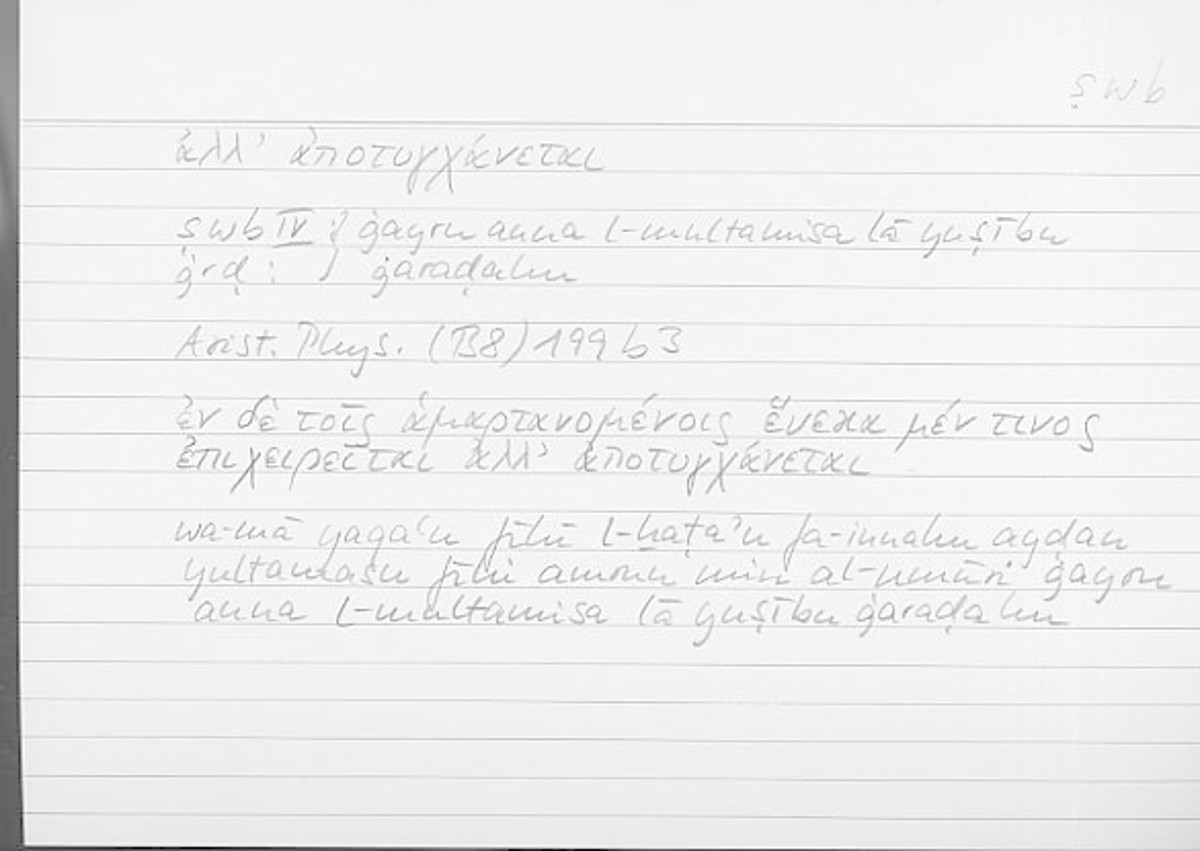 ṣwb
ἀλλ’ ἀποτυγχάνεται
ṣwb IV } ġayru anna l-multamisa lā yuṣību
ġrḍ : } ġaraḍahu
Arist. Phys. (B8) 199 b 3
ἐν δὲ τοῖς ἁμαρτανομένοις ἕνεκα μέν τινος
ἐπιχειρεῖται ἀλλ’ ἀποτυγχάνεται
wa-mā yaqaʿu fīhi l-ḫaṭaʾu fa-innahu ayḍan
yultamasu fīhi amrun min al-umūri ġayru
anna l-multamisa lā yuṣību ġaraḍahu